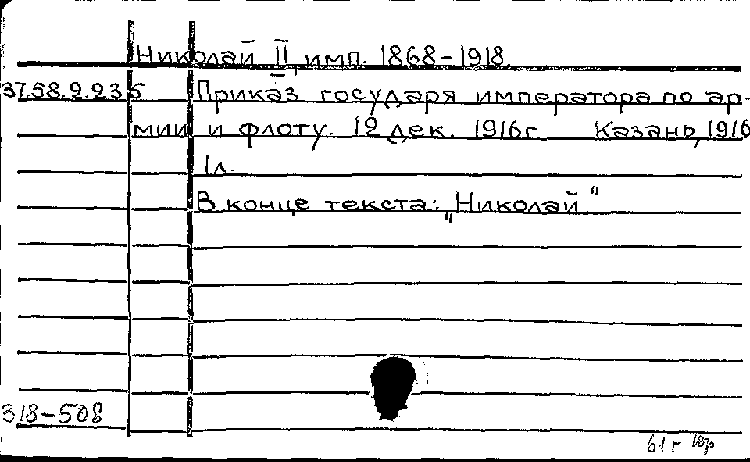 Николай II, имп. 1868-1918.
37.58.9.235 Приказ государя императора по ар-
мии и флоту. 12 дек. 1916г. Казань, 1916
1л.
В конце текста: „Николай"
318-508
61г